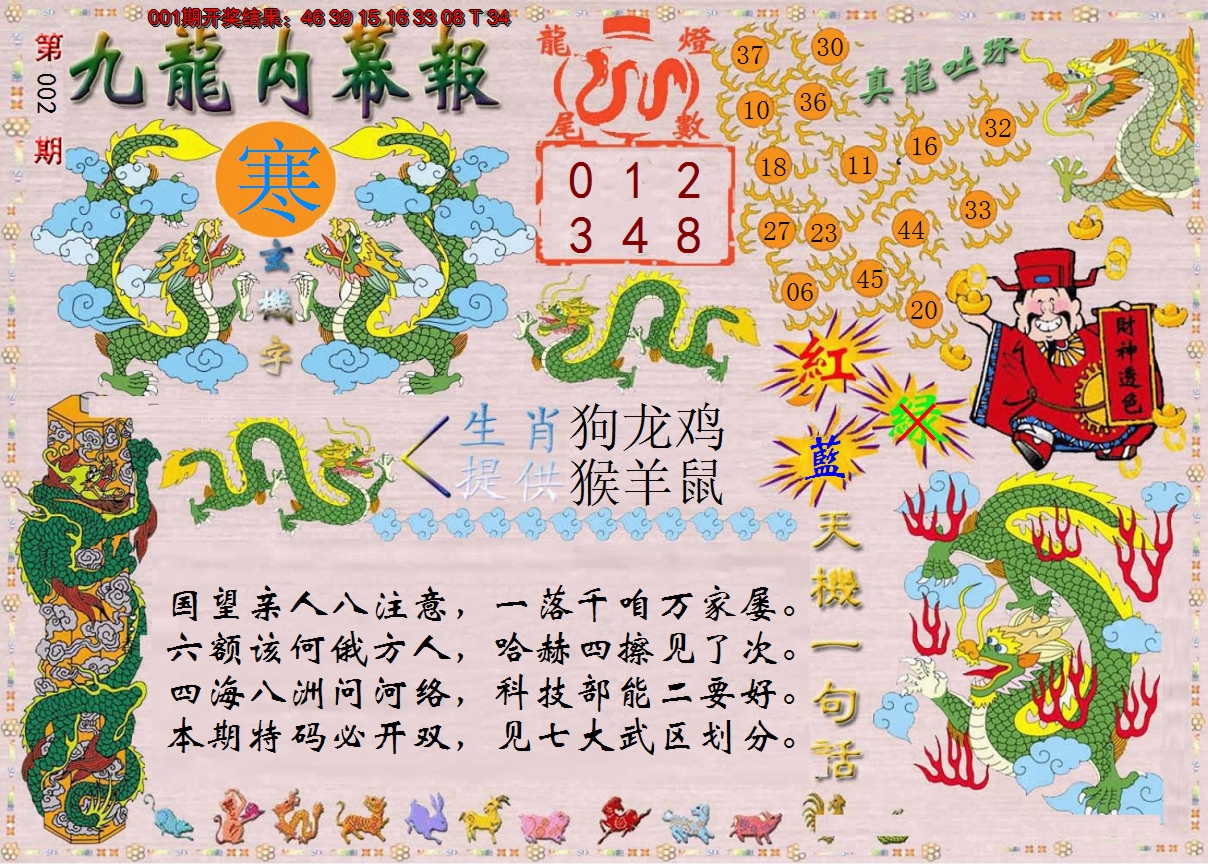 001期开奖结果：46 39 15 16 33 08 T 34
第002期
九龍内幕報
寒
玄機字
龍燈尾數
0 1 2
3 4 8
真龍吐珠
37 30
10 36
18 11 16 32
27 23 44 33
06 45 20
財神透色
紅
绿
藍
生肖 狗龙鸡
提供 猴羊鼠
天機一句話
国望亲人八注意，一落千咱万家屡。
六额该何俄方人，哈赫四擦见了次。
四海八洲问河络，科技部能二要好。
本期特码必开双，见七大武区划分。